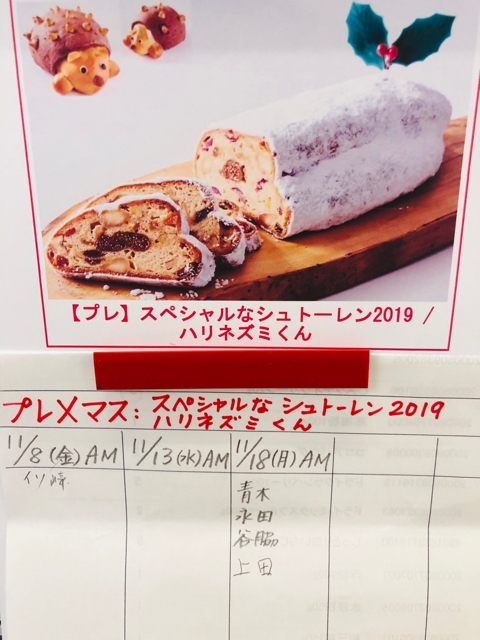 【プレ】スペシャルなシュトーレン2019 /
ハリネズミくん
プレXマス: スペシャルな シュトーレン 2019
ハリネズミ くん
11/8(金)AM 11/13(水)AM 11/18(月)AM
青木
永田
谷脇
上田